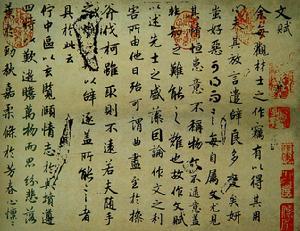 文賦
余每觀材士之作竊有以得其用
夫其放言遣辭良多變矣妍
蚩好惡可得而言每自屬文尤見
其情恒患意不稱物文不逮意盖
非知之難能之難也故作文賦
以述先士之盛藻因論作文之利
害所由他日殆可謂曲盡至於操
斧伐柯雖取則不遠若夫隨手
之難以辭逮盖所能言之者
具於此云
佇中區以玄覽頤情志於典墳遵
四時以歎逝瞻萬物而思紛悲落
葉於勁秋嘉柔條於芳春心懍